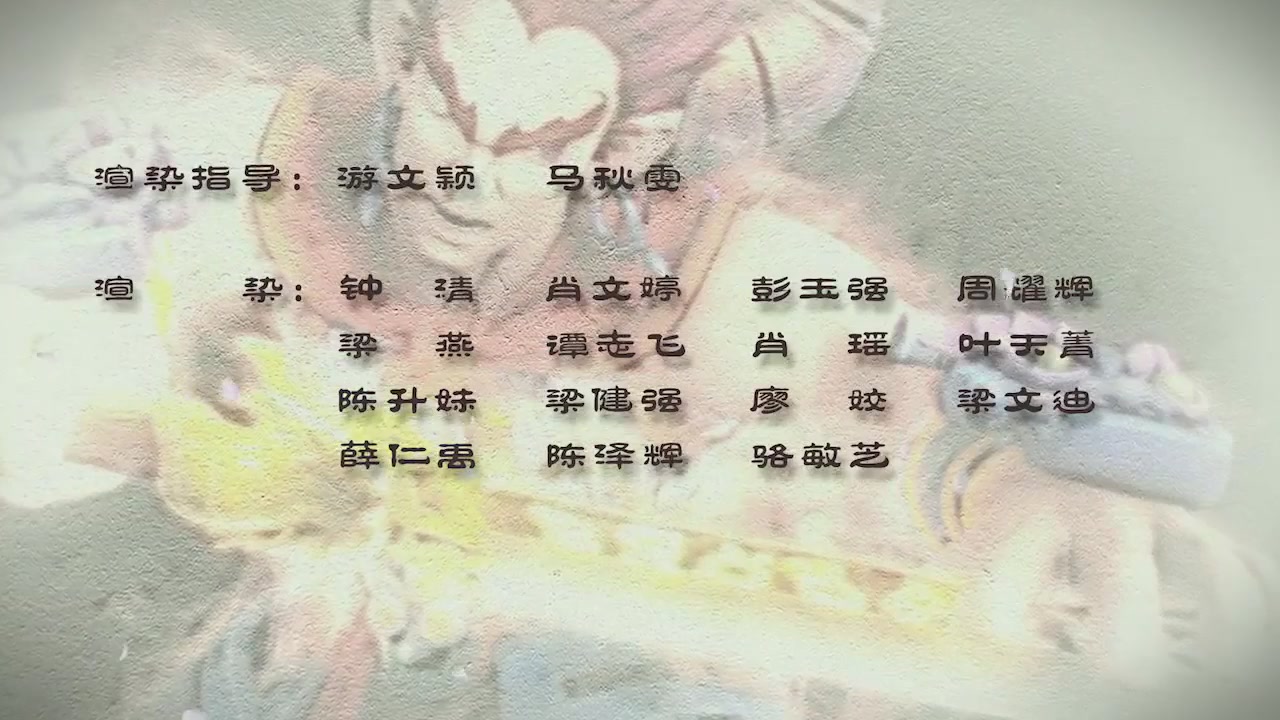 渲染指导：游文颖 马秋雯
渲染：钟清 肖文婷 彭玉强 周耀辉
梁燕 谭志飞 肖瑶 叶天菁
陈升妹 梁健强 廖姣 梁文迪
薛仁禹 陈泽辉 骆敏芝